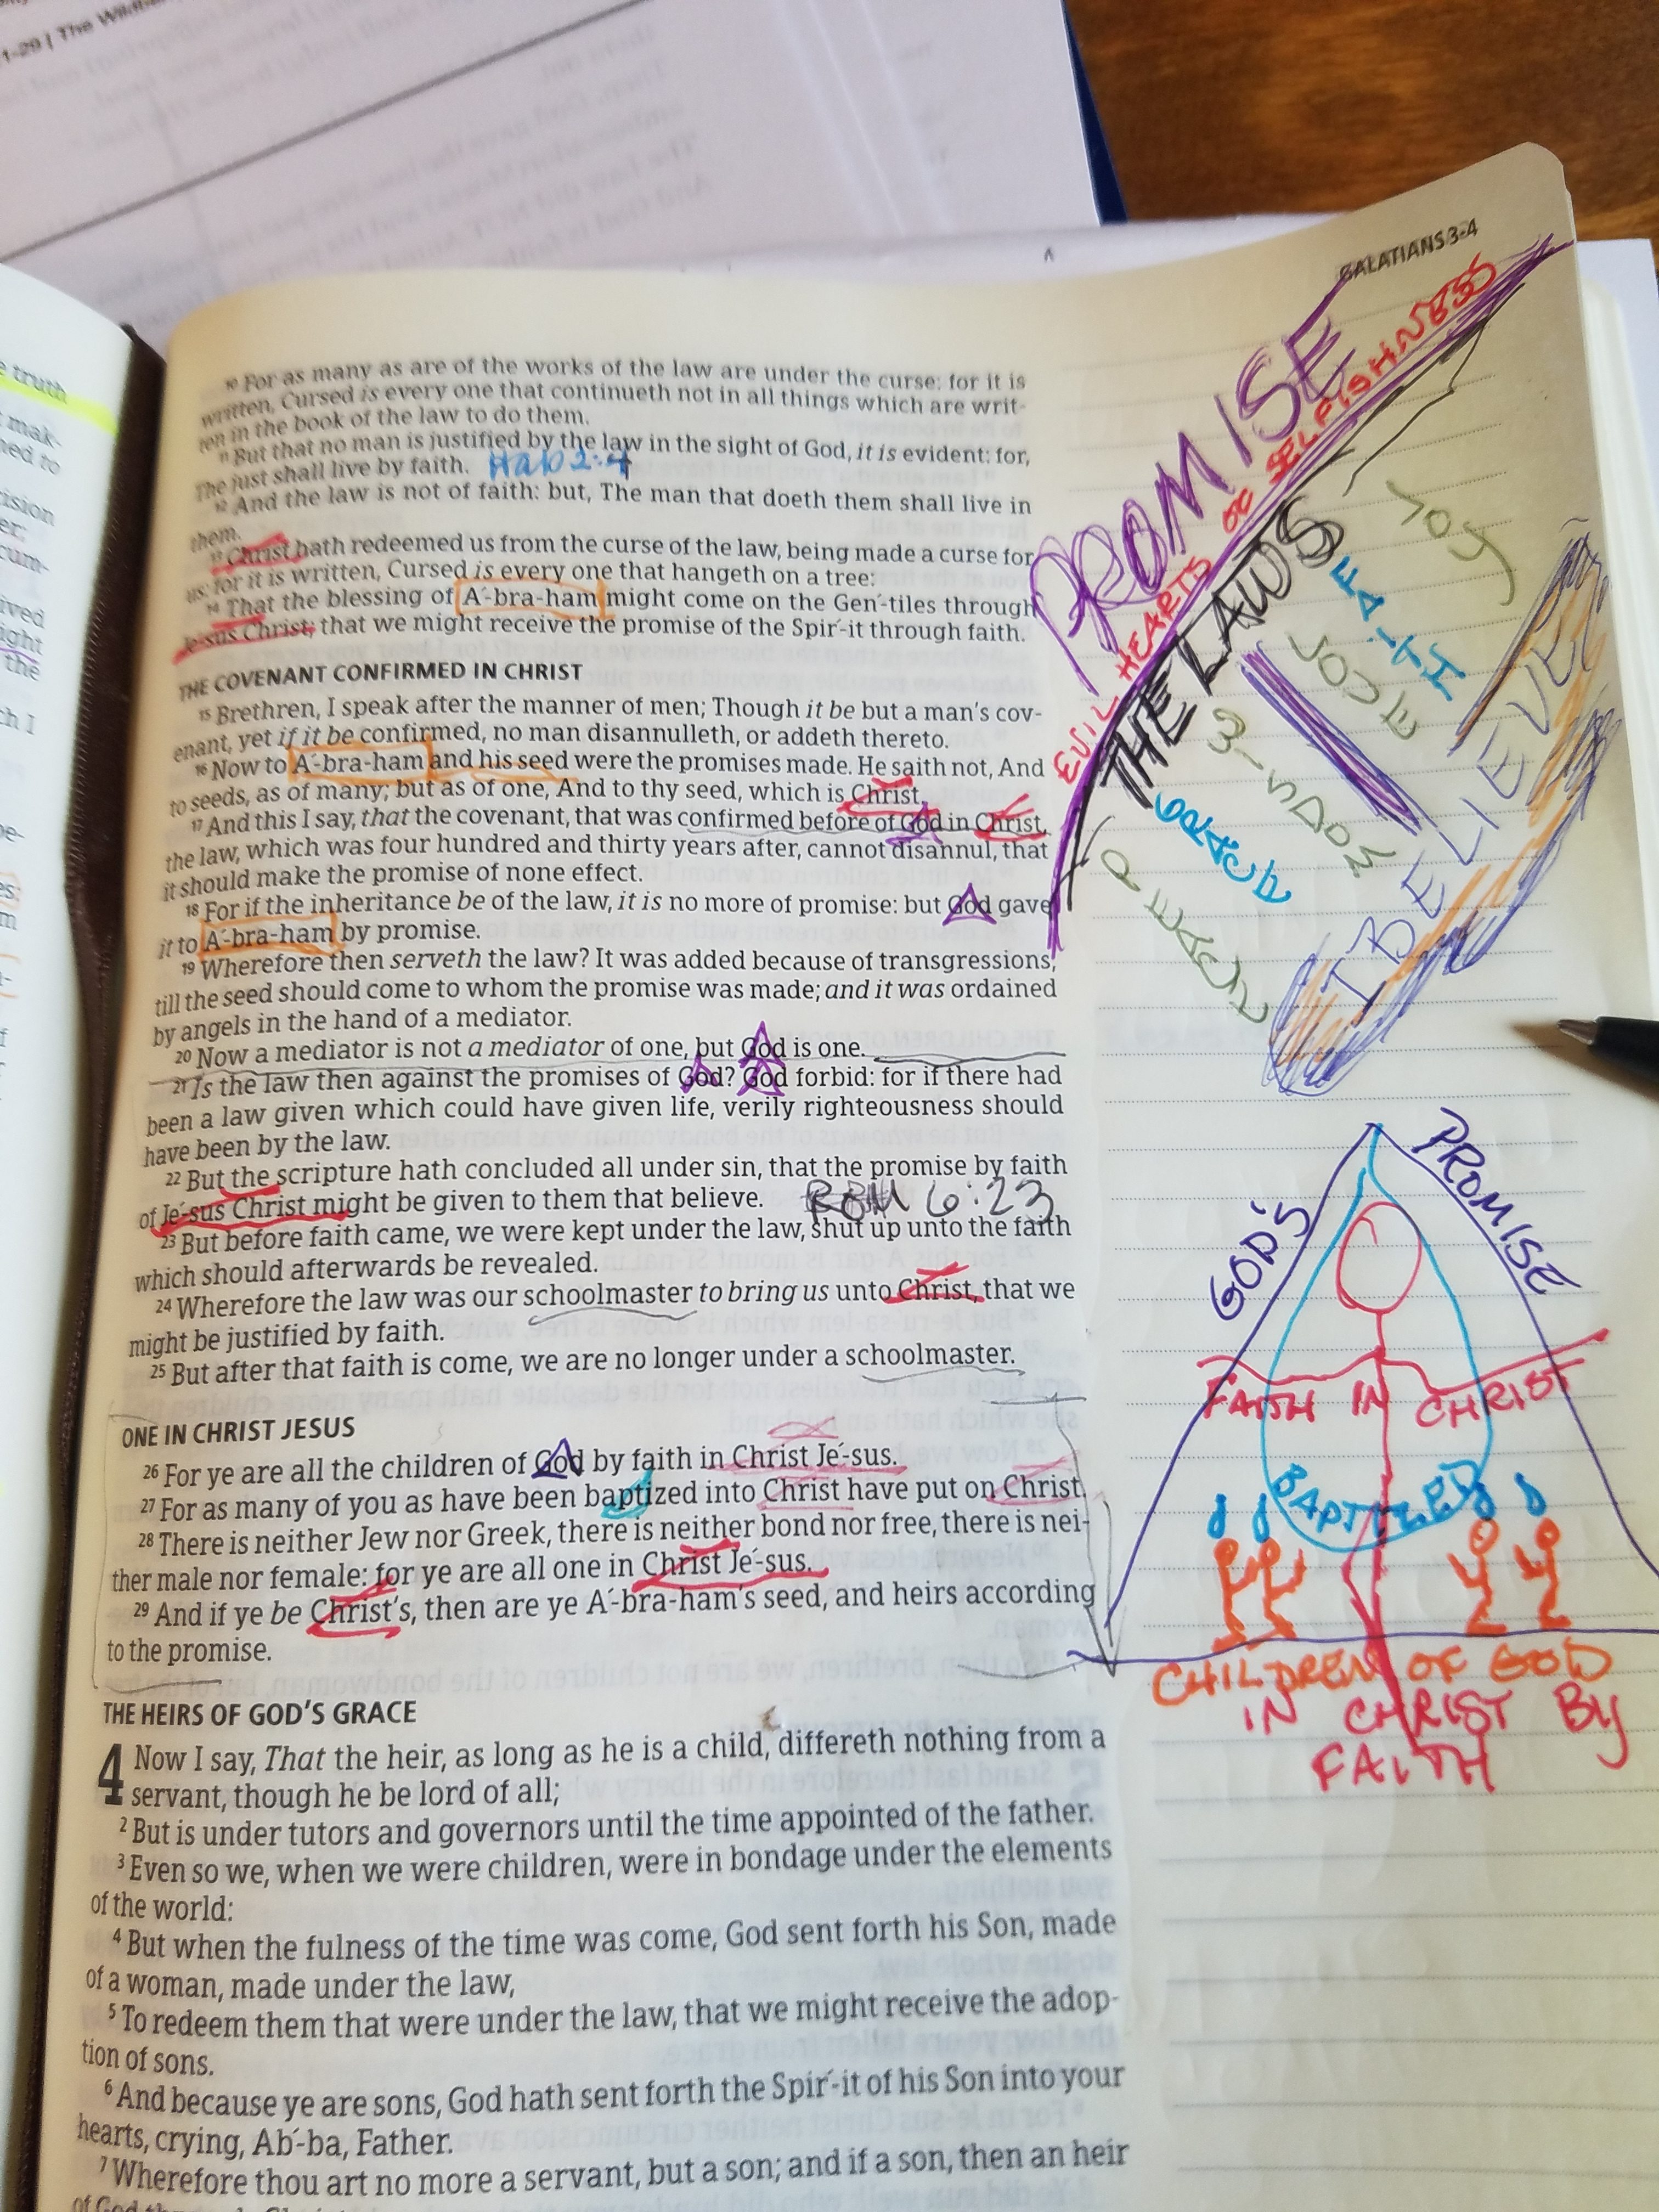 1-29 | The
GALATIANS 3-4
truth
mak-
ned to
cision
er:
cum-
ived
ight
the
ch I
10 For as many as are of the works of the law are under the curse: for it is
written, Cursed is every one that continueth not in all things which are writ-
ten in the book of the law to do them.
11 But that no man is justified by the law in the sight of God, it is evident: for,
The just shall live by faith. Hab 2:4
12 And the law is not of faith: but, The man that doeth them shall live in
them.
13 Christ hath redeemed us from the curse of the law, being made a curse for
us: for it is written, Cursed is every one that hangeth on a tree:
14 That the blessing of A´-bra-ham might come on the Gen´-tiles through
Je´-sus Christ; that we might receive the promise of the Spir´-it through faith.
THE COVENANT CONFIRMED IN CHRIST
15 Brethren, I speak after the manner of men; Though it be but a man's cov-
enant, yet if it be confirmed, no man disannulleth, or addeth thereto.
16 Now to A´-bra-ham and his seed were the promises made. He saith not, And
to seeds, as of many; but as of one, And to thy seed, which is Christ.
17 And this I say, that the covenant, that was confirmed before of God in Christ,
the law, which was four hundred and thirty years after, cannot disannul, that
it should make the promise of none effect.
18 For if the inheritance be of the law, it is no more of promise: but God gave
it to A´-bra-ham by promise.
19 Wherefore then serveth the law? It was added because of transgressions,
till the seed should come to whom the promise was made; and it was ordained
by angels in the hand of a mediator.
20 Now a mediator is not a mediator of one, but God is one.
21 Is the law then against the promises of God? God forbid: for if there had
been a law given which could have given life, verily righteousness should
have been by the law.
22 But the scripture hath concluded all under sin, that the promise by faith
of Je´-sus Christ might be given to them that believe. ROM 6:23
23 But before faith came, we were kept under the law, shut up unto the faith
which should afterwards be revealed.
24 Wherefore the law was our schoolmaster to bring us unto Christ, that we
might be justified by faith.
25 But after that faith is come, we are no longer under a schoolmaster.
ONE IN CHRIST JESUS
26 For ye are all the children of God by faith in Christ Je´-sus.
27 For as many of you as have been baptized into Christ have put on Christ.
28 There is neither Jew nor Greek, there is neither bond nor free, there is nei-
ther male nor female: for ye are all one in Christ Je´-sus.
29 And if ye be Christ's, then are ye A´-bra-ham's seed, and heirs according
to the promise.
THE HEIRS OF GOD'S GRACE
4 Now I say, That the heir, as long as he is a child, differeth nothing from a
servant, though he be lord of all;
2 But is under tutors and governors until the time appointed of the father.
3 Even so we, when we were children, were in bondage under the elements
of the world:
4 But when the fulness of the time was come, God sent forth his Son, made
of a woman, made under the law,
5 To redeem them that were under the law, that we might receive the adop-
tion of sons.
6 And because ye are sons, God hath sent forth the Spir´-it of his Son into your
hearts, crying, Ab´-ba, Father.
7 Wherefore thou art no more a servant, but a son; and if a son, then an heir
PROMISE
EVIL HEARTS OF SELFISHNESS
THE LAWS
JOY
FAITH
LOVE
WISDOM
GRACE
PEACE
I BELIEVE
GOD'S PROMISE
FAITH IN CHRIST
BAPTIZED
CHILDREN OF GOD
IN CHRIST BY
FAITH